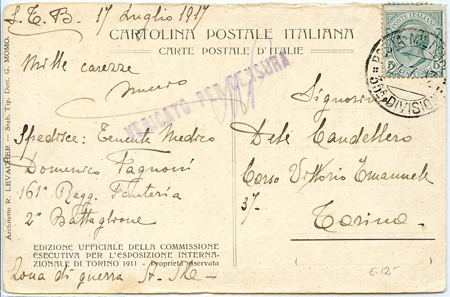 17 Luglio 1917
CARTOLINA POSTALE ITALIANA
CARTE POSTALE D'ITALIE
Mille carezze
VERIFICATO PER CENSURA
Signorina
Dete Candellero
Corso Vittorio Emanuele
37-
Torino
Spedisce: Tenente Medico
Domenico Fagnoni
161º Regg. Fanteria
2º Battaglione
Zona di guerra
EDIZIONE UFFICIALE DELLA COMMISSIONE
ESECUTIVA PER L'ESPOSIZIONE INTERNA-
ZIONALE DI TORINO 1911 - Proprietà riservata
Architetto R. LEVACHER — Stab. Tip. Dott. G. MOMO.
POSTE ITALIANE
DIVISIONE
€.12-